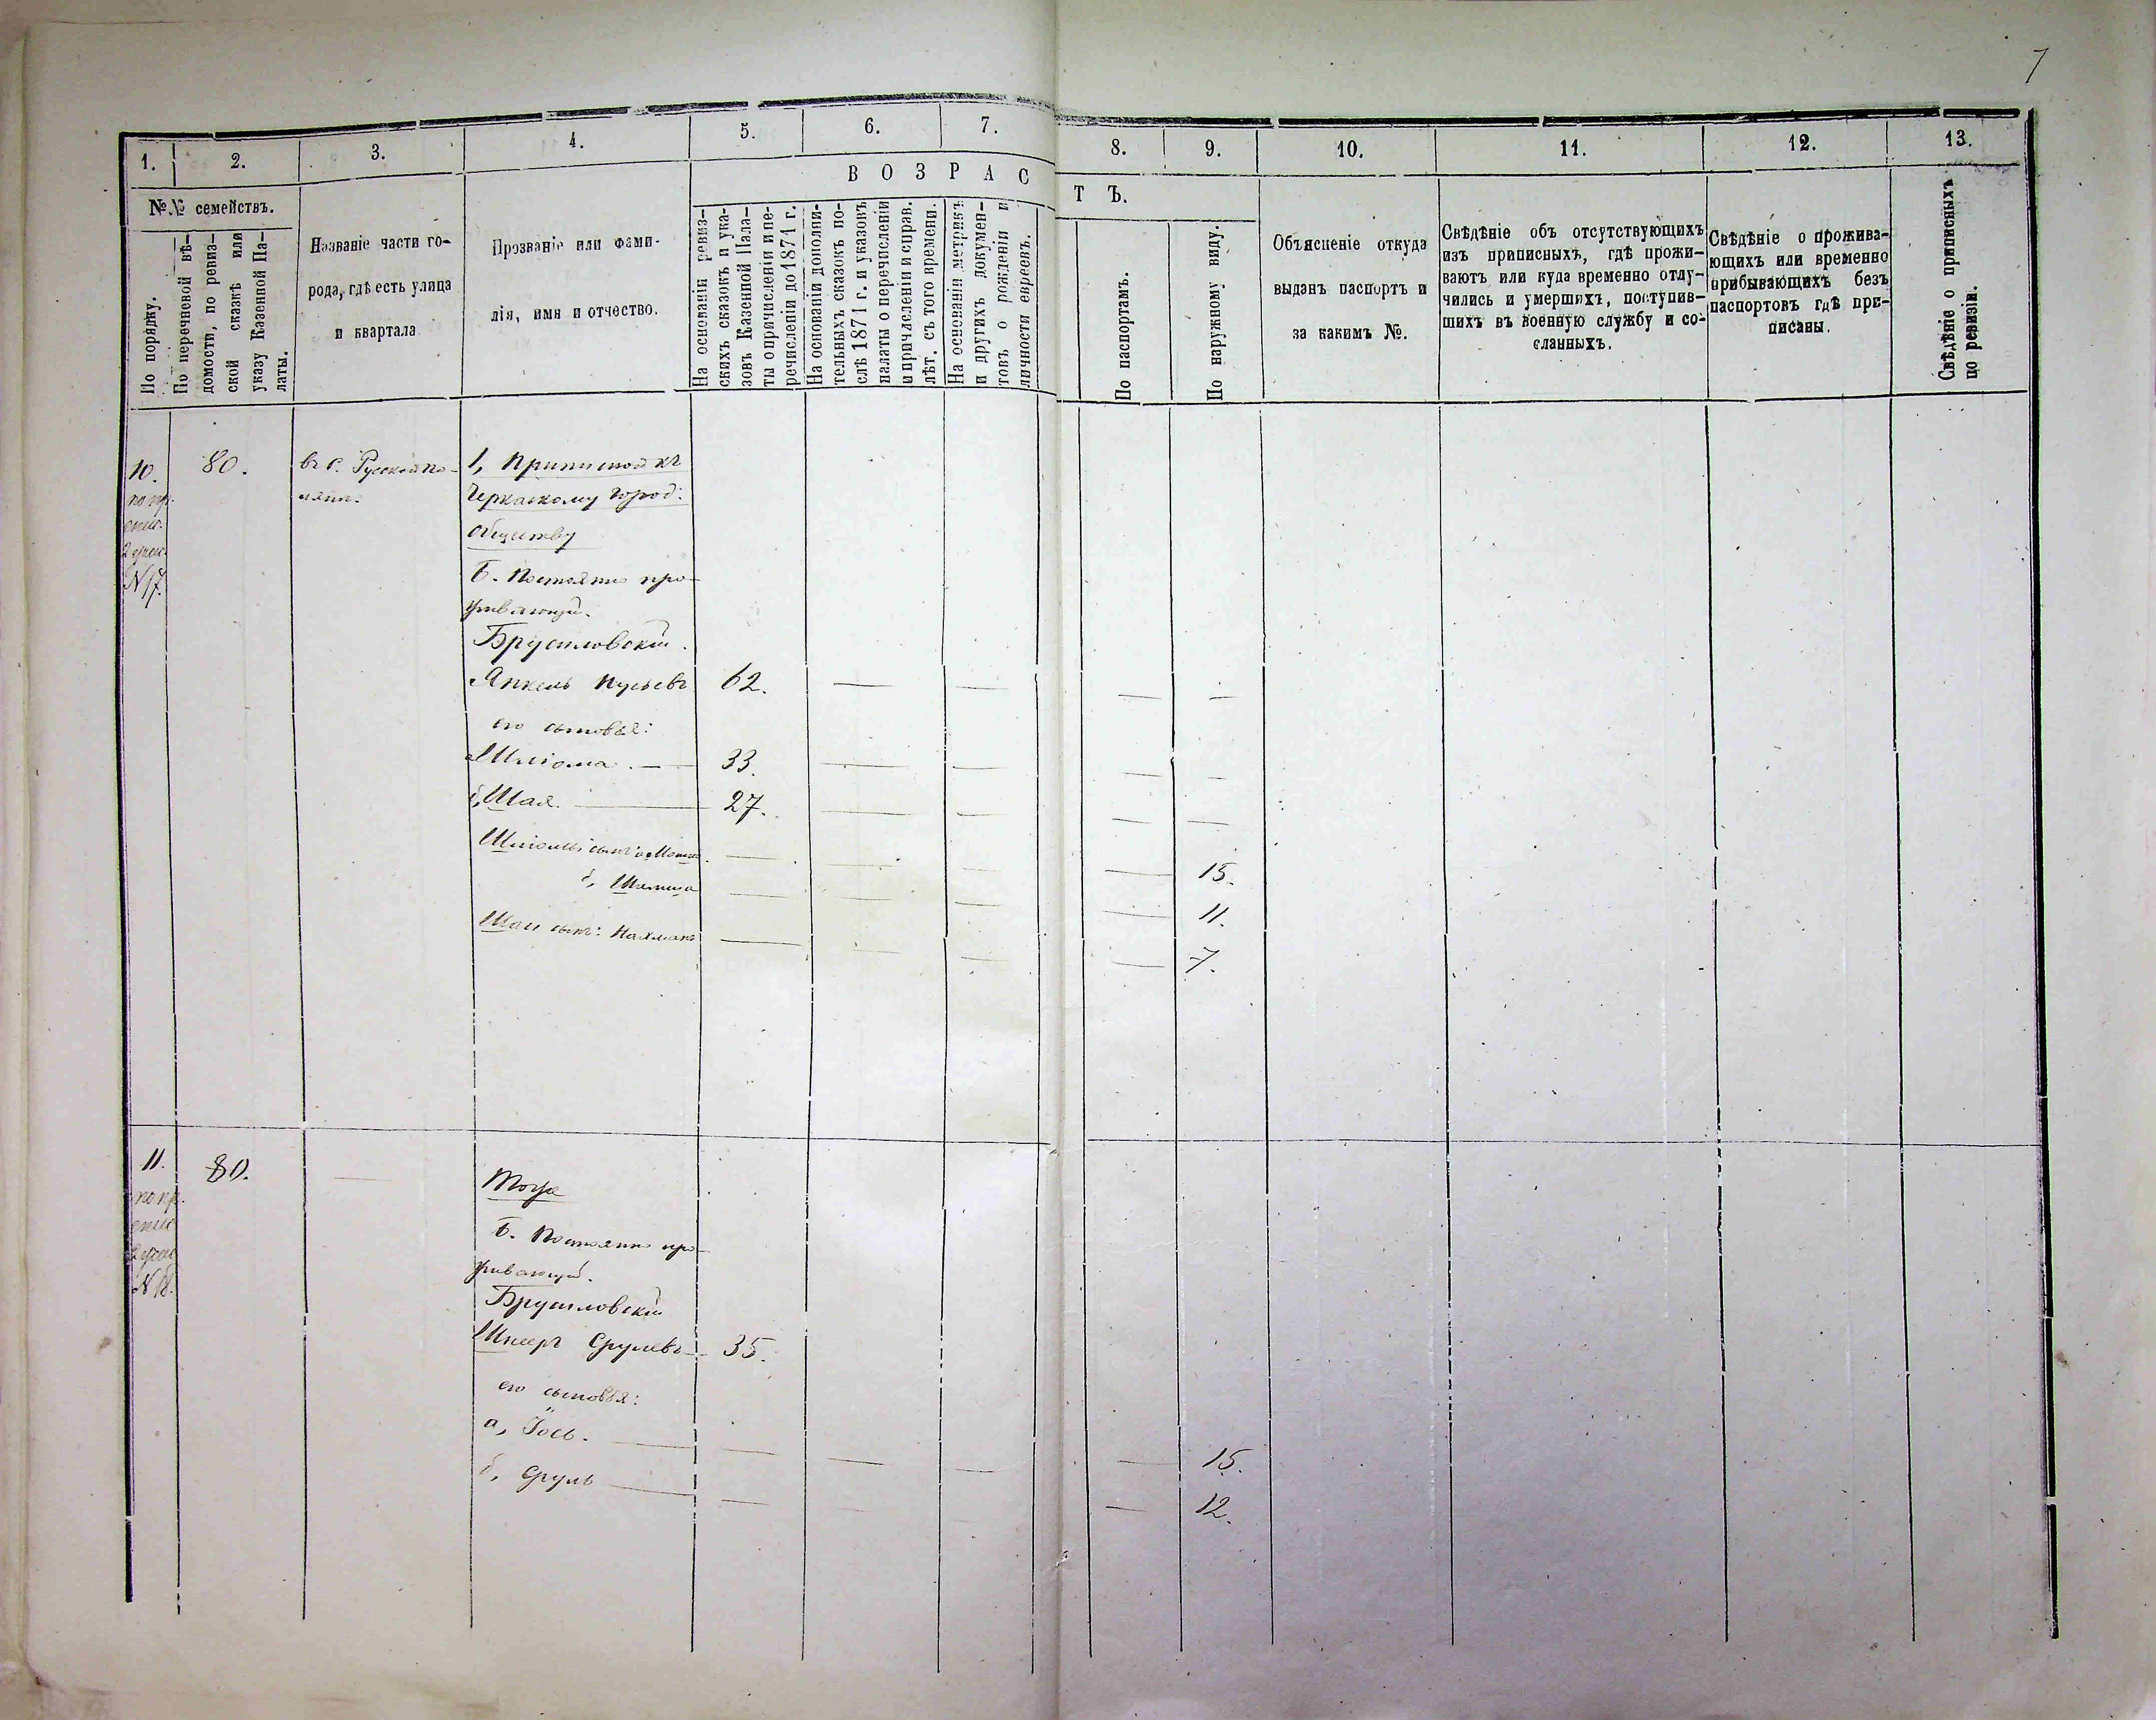 7
1.
2.
3.
4.
5.
6.
7.
8.
9.
10.
11.
12.
13.
ВОЗРАС
ТЪ.
№№ семействъ.
По порядку.
По перечневой вѣ-
домости, по ревиз-
ской сказкѣ или
указу Казенной Па-
латы.
Названіе части го-
рода, гдѣ есть улица
и квартала
Прозваніе или фами-
лія, имя и отчество.
На основаніи ревиз-
скихъ сказокъ и ука-
зовъ Казенной Пала-
ты о причисленіи и пе-
речисленіи до 1871 г.
На основаніи дополни-
тельныхъ сказокъ по-
слѣ 1871 г. и указовъ
палаты о перечисленіи
и причисленіи и справ.
лѣт. съ того времени.
На основаніи метрикъ
и другихъ докумен-
товъ о рожденіи и
личности евреевъ.
По паспортамъ.
По наружному виду.
Объясненіе откуда
выданъ паспортъ и
за какимъ №.
Свѣдѣніе объ отсутствующихъ
изъ приписныхъ, гдѣ прожи-
ваютъ или куда временно отлу-
чились и умершихъ, поступив-
шихъ въ военную службу и со-
сланныхъ.
Свѣдѣніе о прожива-
ющихъ или временно
прибывающихъ безъ
паспортовъ гдѣ при-
писаны.
Свѣдѣніе о приписныхъ
по ревизіи.
10.
N 17.
80.
въ с. Русской По-
лянѣ.
1, Приписной къ
Черкаскому город:
обществу
Б. Постоянно про-
живающій.
Брусиловскій.
Янкель 62.
его сыновья:
а, Шліома. 33.
б, Шая. 27.
Шліомы сынъ а, Мошко. 15.
б, 11.
Шаи сынъ: Нахманъ 7.
11.
N 18.
80.
Тоже
Б. Постоянно про-
живающій.
Брусиловскій
Срулевъ 35.
его сыновья:
а, Іось. 15.
б, Сруль 12.